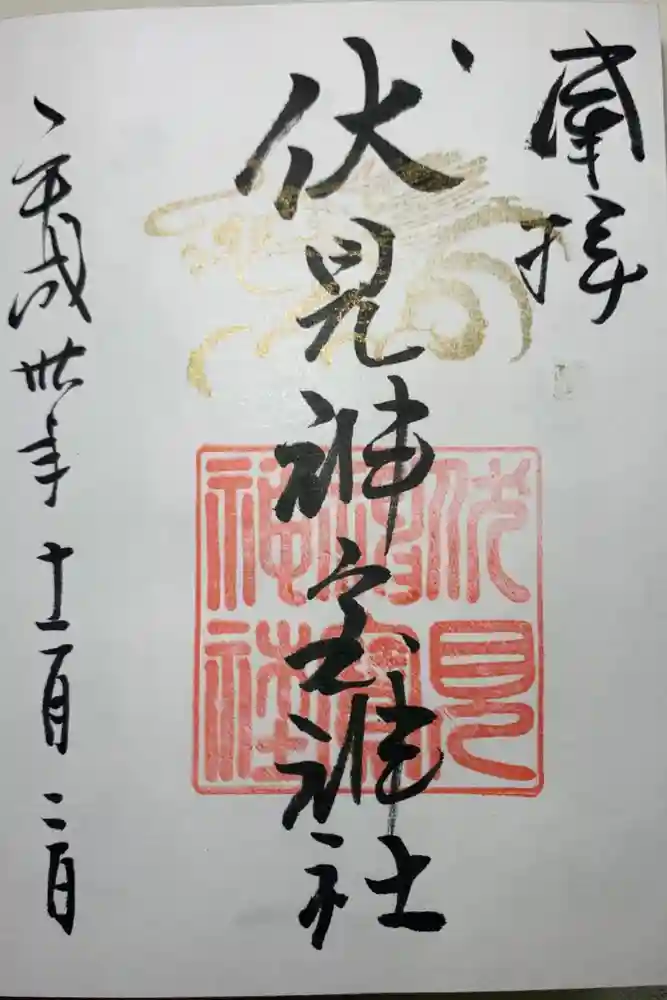 奉拝
伏見神宝神社
平成卅年十二月二日
伏見
神寶
神社